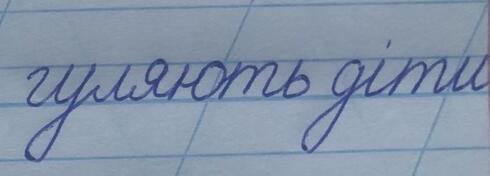 гуляють діти